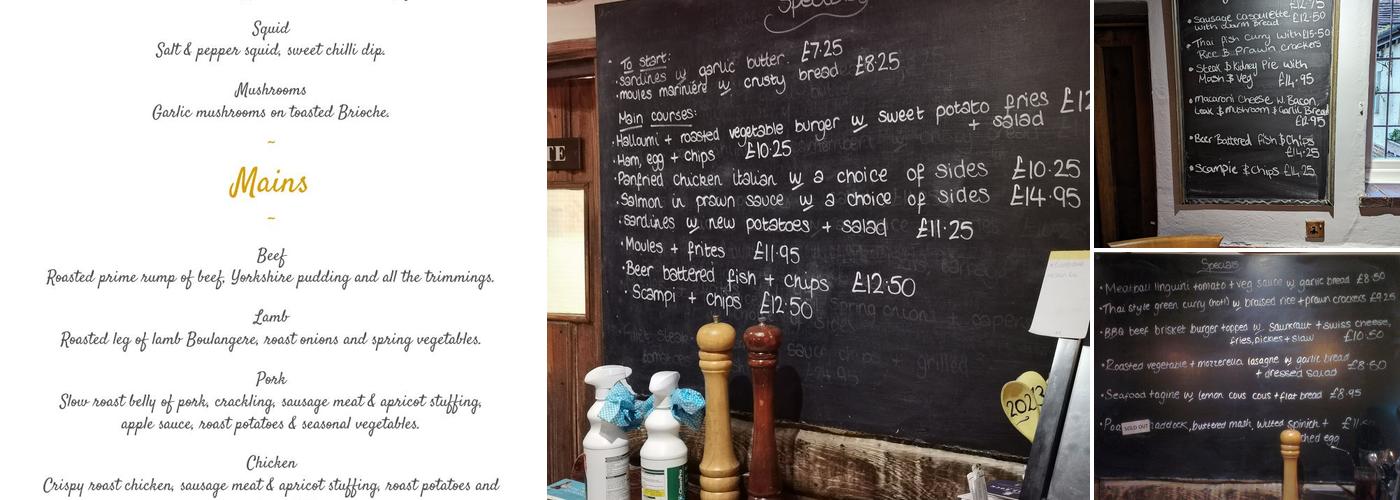 Squid
Salt & pepper squid, sweet chilli dip.
Mushrooms
Garlic mushrooms on toasted Brioche.
~
Mains
~
Beef
Roasted prime rump of beef, Yorkshire pudding and all the trimmings.
Lamb
Roasted leg of lamb Boulangere, roast onions and spring vegetables.
Pork
Slow roast belly of pork, crackling, sausage meat & apricot stuffing,
apple sauce, roast potatoes & seasonal vegetables.
Chicken
Crispy roast chicken, sausage meat & apricot stuffing, roast potatoes and
Specials
To start:
•sardines w garlic butter. £7.25
•moules mariniere w crusty bread £8.25
Main courses:
•Halloumi + roasted vegetable burger w sweet potato fries £12
+ salad
•Ham, egg + chips £10.25
•Panfried chicken italian w a choice of sides £10.25
•Salmon in prawn sauce w a choice of sides £14.95
•sardines w new potatoes + salad £11.25
•Moules + frites £11.95
•Beer battered fish + chips £12.50
•Scampi + chips £12.50
TE
2023
£12.75
•Sausage casoulette £12.50
with warm bread
•Thai fish curry with £15.50
Rice & Prawn crackers
•Steak & Kidney Pie with
Mash & Veg £14.95
•Macaroni Cheese W. Bacon,
Leak & Mushroom & Garlic Bread
£12.95
•Beer Battered Fish & Chips
£14.25
•Scampie & Chips £14.25
Specials
•Meatball linguini tomato + veg sauce w garlic bread £8.50
•Thai style green curry (hot!) w braised rice + prawn crackers £9.25
•BBQ beef brisket burger topped w saurkraut + swiss cheese,
fries, pickles + slaw £10.50
•Roasted vegetable + mozzerella lasagne w garlic bread
+ dressed salad £8.50
•Seafood tagine w lemon cous cous + flat bread £8.95
SOLD OUT
addock, buttered mash, wilted spinich +
ched egg